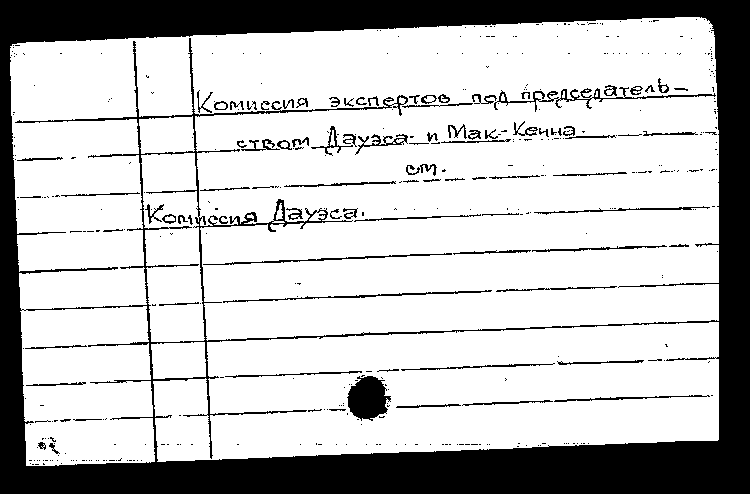 Комиссия экспертов под председатель-
ством Дауэса и Мак-Кенна.
см.
Комиссия Дауэса.